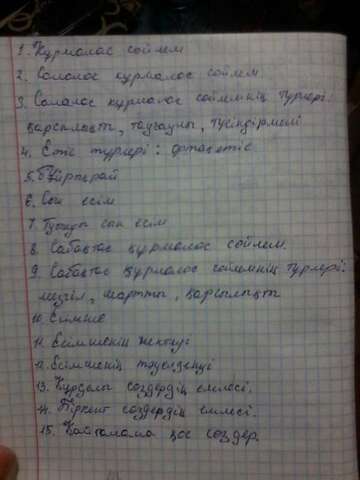 1. Құрмалас сөйлем
2. Салалас құрмалас сөйлем
3. Салалас құрмалас сөйлемнің түрлері:
қарсылықты, талғаулы, түсіндірмелі
4. Етіс түрлері: өзгелік етіс
5. Бұйрық рай
6. Сан есім
7. Туынды сан есім
8. Сабақтас құрмалас сөйлем.
9. Сабақтас құрмалас сөйлемнің түрлері:
мезгіл, шартты, қарсылықты
10. Есімше
11. Есімшенің жектелуі
12. Есімшенің тәуелденуі
13. Күрделі сөздердің емлесі.
14. Біріккен сөздердің емлесі.
15. Қайталама қос сөздер.